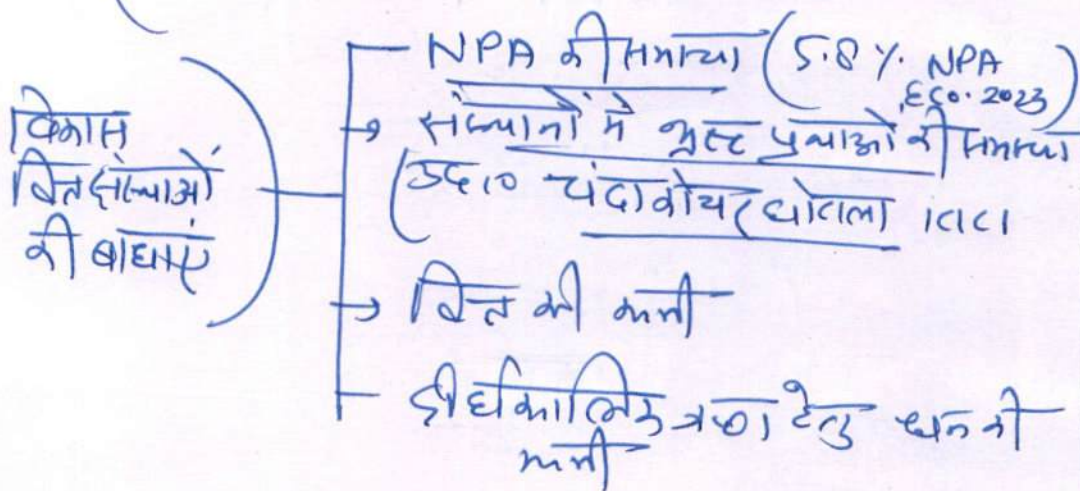 विकास
वित्त संस्थाओं
की बाधाएं
NPA की समस्या (5.8% NPA
2023)
→ संस्थानों में भ्रष्ट प्रथाओं की समस्या
(उदा० चंदा कोचर घोटाला
→ वित्त की कमी
दीर्घकालिक ऋण हेतु धन की
कमी